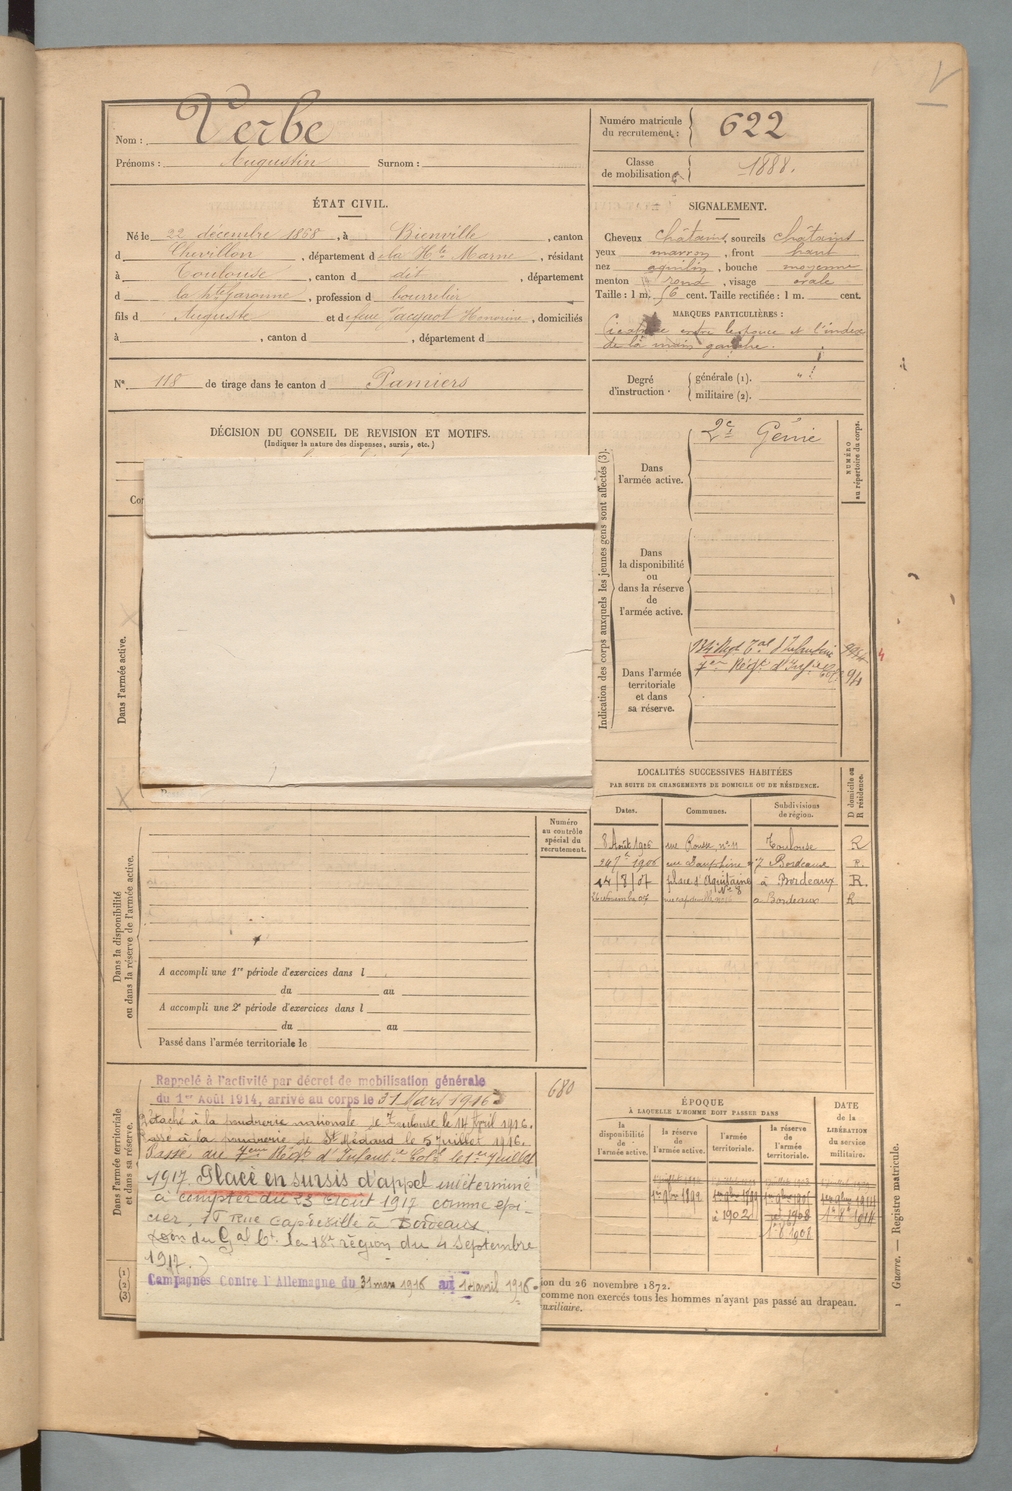 Nom : Verbe
Prénoms : Augustin Surnom :
Numéro matricule du recrutement : 622
Classe de mobilisation 1888.
ÉTAT CIVIL.
Né le 22 décembre 1868, à Bienville, canton
d Chevillon, département d e la Hte Marne, résidant
à Toulouse, canton d dit, département
d la Hte Garonne, profession d bourrelier
fils d Auguste et d e feue Jacquot Honorine, domiciliés
à , canton d , département d
N° 118 de tirage dans le canton d Pamiers
SIGNALEMENT.
Cheveux châtains, sourcils châtains
yeux marron, front haut
nez aquilin, bouche moyenne
menton rond, visage ovale
Taille : 1 m. 56 cent. Taille rectifiée : 1 m. cent.
MARQUES PARTICULIÈRES :
Cicatrice entre le pouce et l'index
de la main gauche.
Degré d'instruction · générale (1). militaire (2).
DÉCISION DU CONSEIL DE REVISION ET MOTIFS.
(Indiquer la nature des dispenses, sursis, etc.)
Co
Dans l'armée active.
Indication des corps auxquels les jeunes gens sont affectés (3).
NUMÉRO au répertoire du corps.
Dans l'armée active.
2e Génie
Dans la disponibilité ou dans la réserve de l'armée active.
Dans l'armée territoriale et dans sa réserve.
134e Régt Tal d'Infanterie
7em Régt d'Infie Cole
LOCALITÉS SUCCESSIVES HABITÉES
PAR SUITE DE CHANGEMENTS DE DOMICILE OU DE RÉSIDENCE.
Dates. Communes. Subdivisions de région. D domicile ou R résidence.
8 Août 1906 rue Rousse n° 11 Toulouse R
1906 rue Dauphine 7 Bordeaux R
14/8/07 place d'Aquitaine N° 8 à Bordeaux R.
26 Novembre 07 a Bordeaux R
Dans la disponibilité ou dans la réserve de l'armée active.
Numéro au contrôle spécial du recrutement.
A accompli une 1re période d'exercices dans l
du au
A accompli une 2e période d'exercices dans l
du au
Passé dans l'armée territoriale le
Dans l'armée territoriale et dans sa réserve.
680
Rappelé à l'activité par décret de mobilisation générale
du 1er Août 1914, arrivé au corps le 31 Mars 1916
Détaché à la poudrerie nationale de Toulouse le 14 Avril 1916.
Passé à la poudrerie de St Médard le 5 Juillet 1916.
Passé au 7eme Régt d'Infanterie Colle le 1er Juillet
1917. Placé en sursis d'appel indéterminé
à compter du 23 Aout 1917 comme épi-
cier, 15 Rue Capdeville à Bordeaux
du Gal Ct la 18e région du 4 Septembre
1917.)
Campagnes Contre l'Allemagne du 31 mars 1916 au 14 avril 1916.
ÉPOQUE
À LAQUELLE L'HOMME DOIT PASSER DANS
la disponibilité de l'armée active. la réserve de l'armée active. l'armée territoriale. la réserve de l'armée territoriale.
DATE de la LIBÉRATION du service militaire.
à 1902
(1)
(2)
(3)
ion du 26 novembre 1872.
comme non exercés tous les hommes n'ayant pas passé au drapeau.
uxiliaire.
Guerre. — Registre matricule.